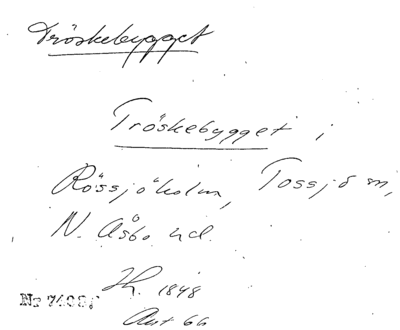 Tröskebygget
Tröskebygget i
Rössjöholm, Tossjö sn,
N. Åsbo hd.
1848